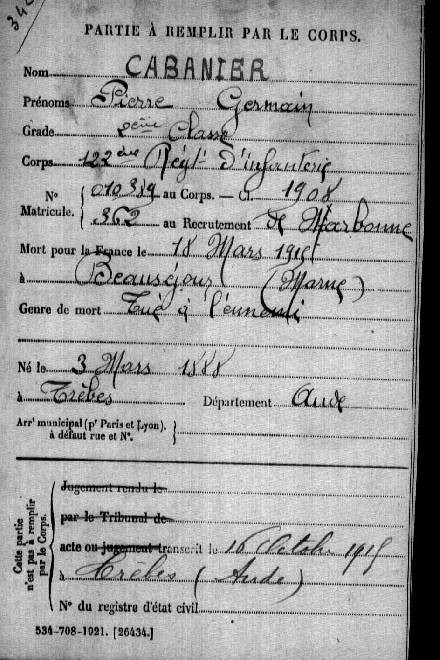 340
PARTIE À REMPLIR PAR LE CORPS.
Nom CABANIER
Prénoms Pierre Germain
Grade 2ème Classe
Corps 122ème Régt d'infanterie
N° 010389 au Corps. — Cl. 1908
Matricule. 362 au Recrutement de Narbonne
Mort pour la France le 18 Mars 1915
à Beauséjour (Marne)
Genre de mort Tué à l'ennemi
Né le 3 Mars 1888
à Trèbes Département Aude
Arrt municipal (pr Paris et Lyon),
à défaut rue et N°.
Cette partie
n'est pas à remplir
par le Corps.
Jugement rendu le
par le Tribunal de
acte ou jugement transcrit le 16 Octobre 1915
à Trèbes (Aude)
N° du registre d'état civil
534-708-1921. [26434.]